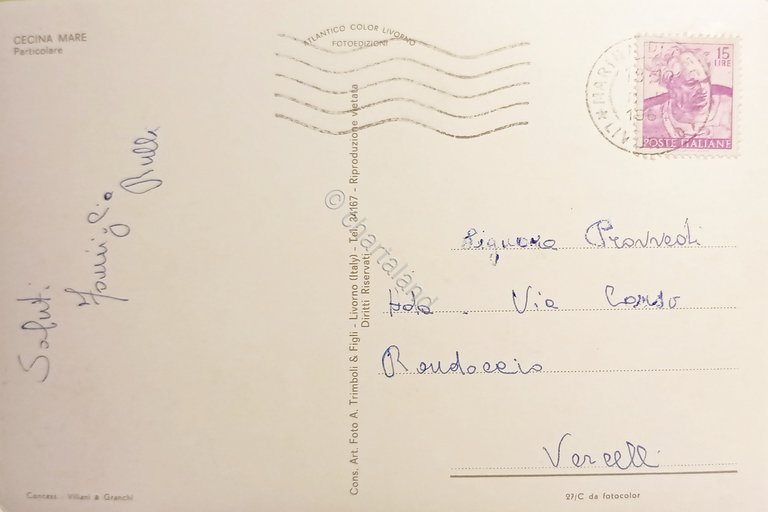 CECINA MARE
Particolare
ATLANTICO COLOR LIVORNO
FOTOEDIZIONI
15
LIRE
POSTE ITALIANE
Saluti
Famiglia
Rulli
Cons. Art. Foto A. Trimboli & Figli - Livorno (Italy) - Tel. 34167 - Riproduzione vietata
Diritti Riservati
© chartaland
Signora Provvedi
Via Corso
Vercelli
Concess. Villani & Granchi
27/C da fotocolor